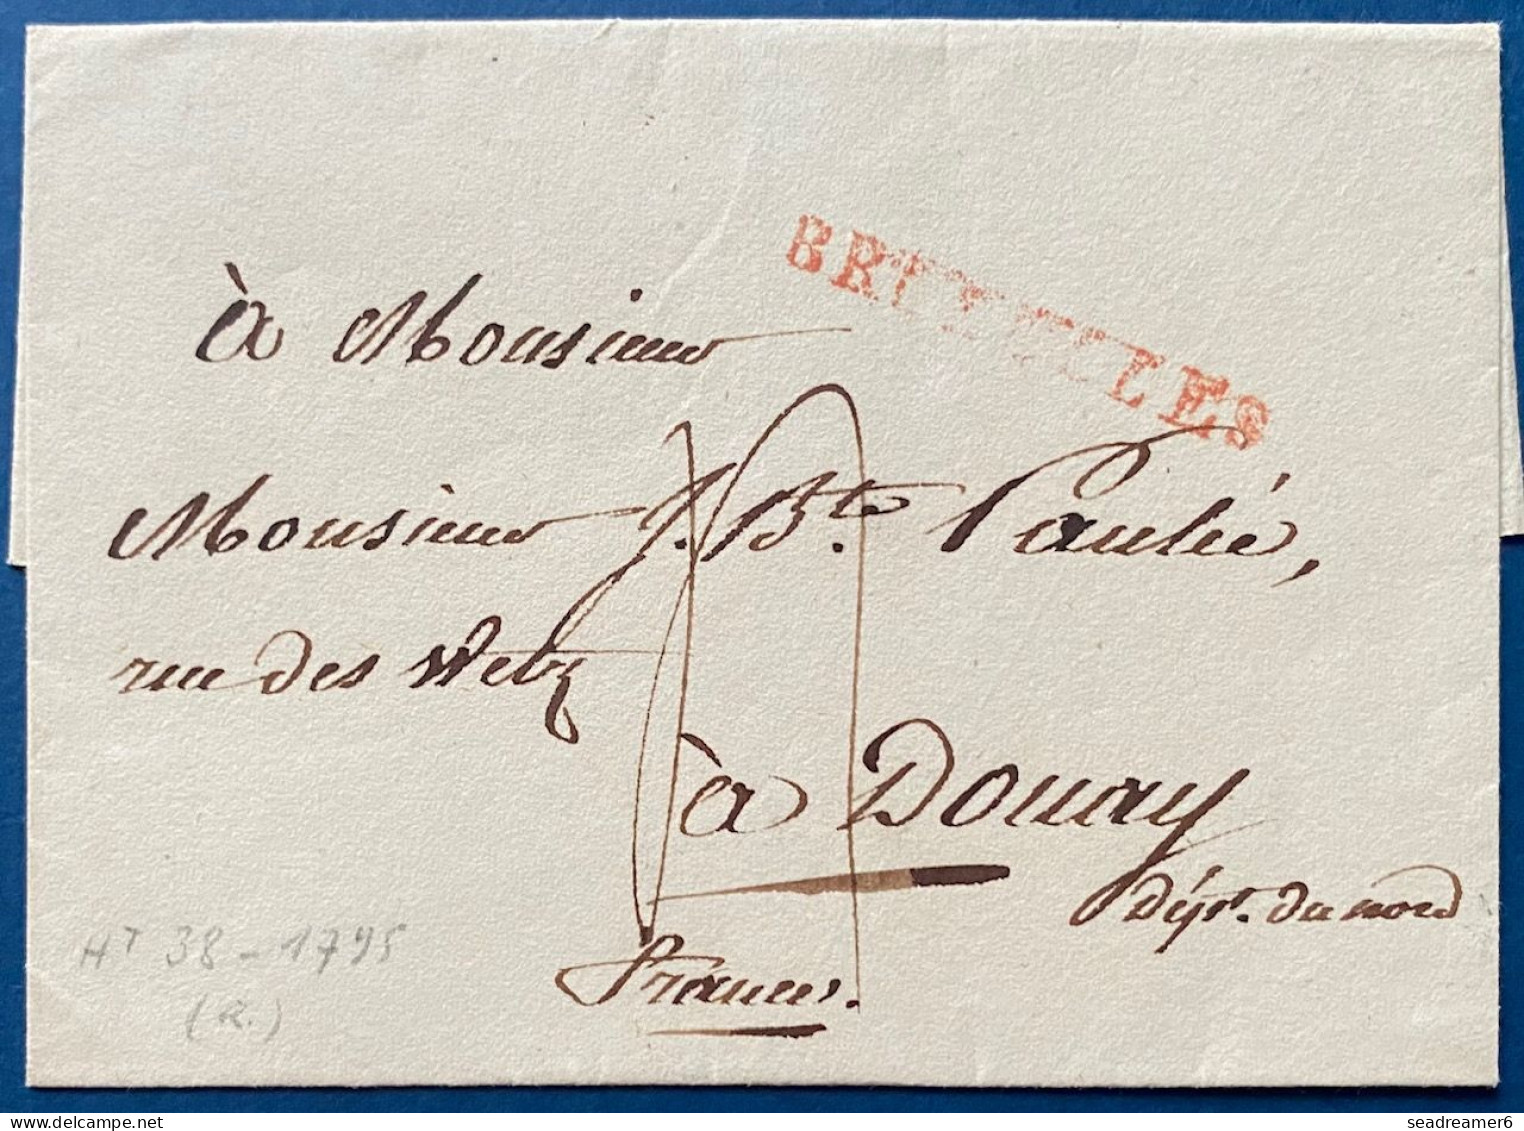 BRUXELLES
à Monsieur
Monsieur J. Bte. Paulée,
rue des Wetz
à Douay
Dépt. du nord
france.
HT 38 - 1795
(R.)
© www.delcampe.net
seadreamer6